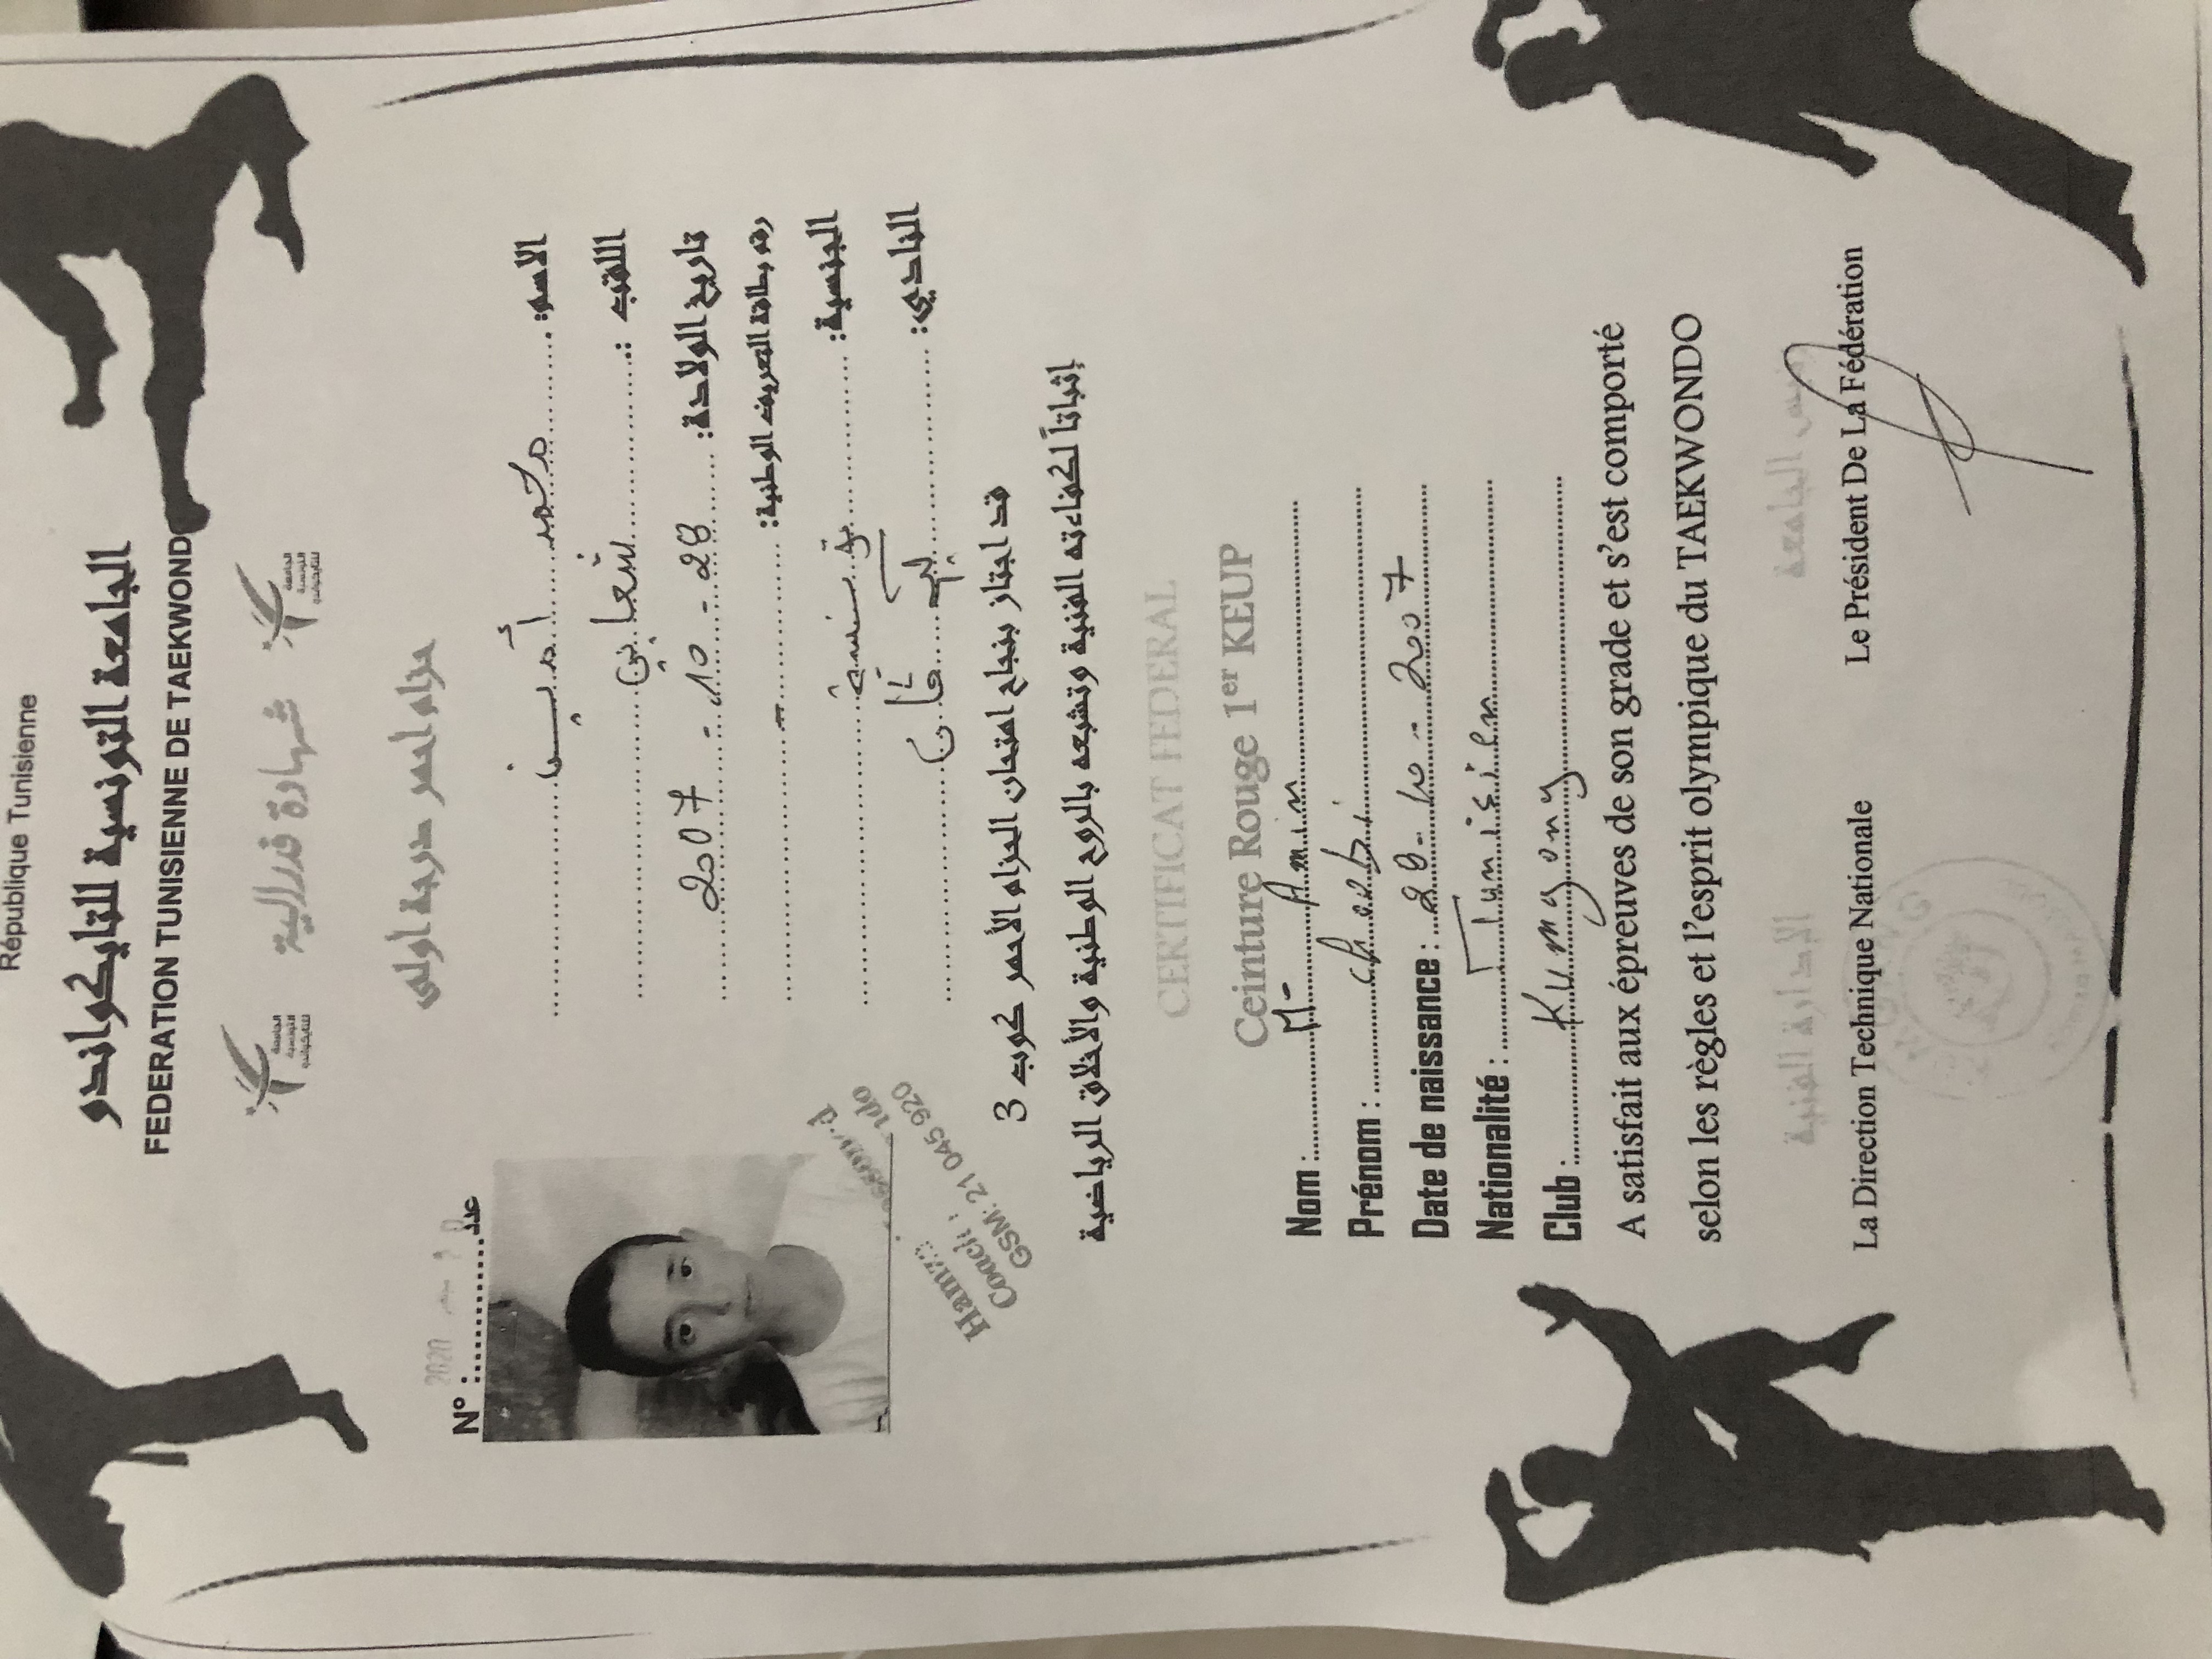 République Tunisienne
الجامعة التونسية للتايكواندو
FEDERATION TUNISIENNE DE TAEKWONDO
شهادة فدرالية
حزام احمر درجة اولى
N° :............عدد
2020
الاسم: محمد أمين
اللقب: شعابي
تاريخ الولادة: 28 - 10 - 2007
رقم بطاقة التعريف الوطنية: -
الجنسية: تونسية
النادي:
Hamza
Coach
GSM: 21 045 920
قد اجتاز بنجاح امتحان الحزام الأحمر كوب 3
إثباتاً لكفاءته الفنية وتشبعه بالروح الوطنية والأخلاق الرياضية
CERTIFICAT FEDERAL
Ceinture Rouge 1er KEUP
Nom : M- Amin
Prénom : chaabi
Date de naissance : 28 - 10 - 2007
Nationalité : Tunisien
Club : Kumgang
A satisfait aux épreuves de son grade et s'est comporté
selon les règles et l'esprit olympique du TAEKWONDO
الإدارة الفنية رئيس الجامعة
La Direction Technique Nationale Le Président De La Fédération